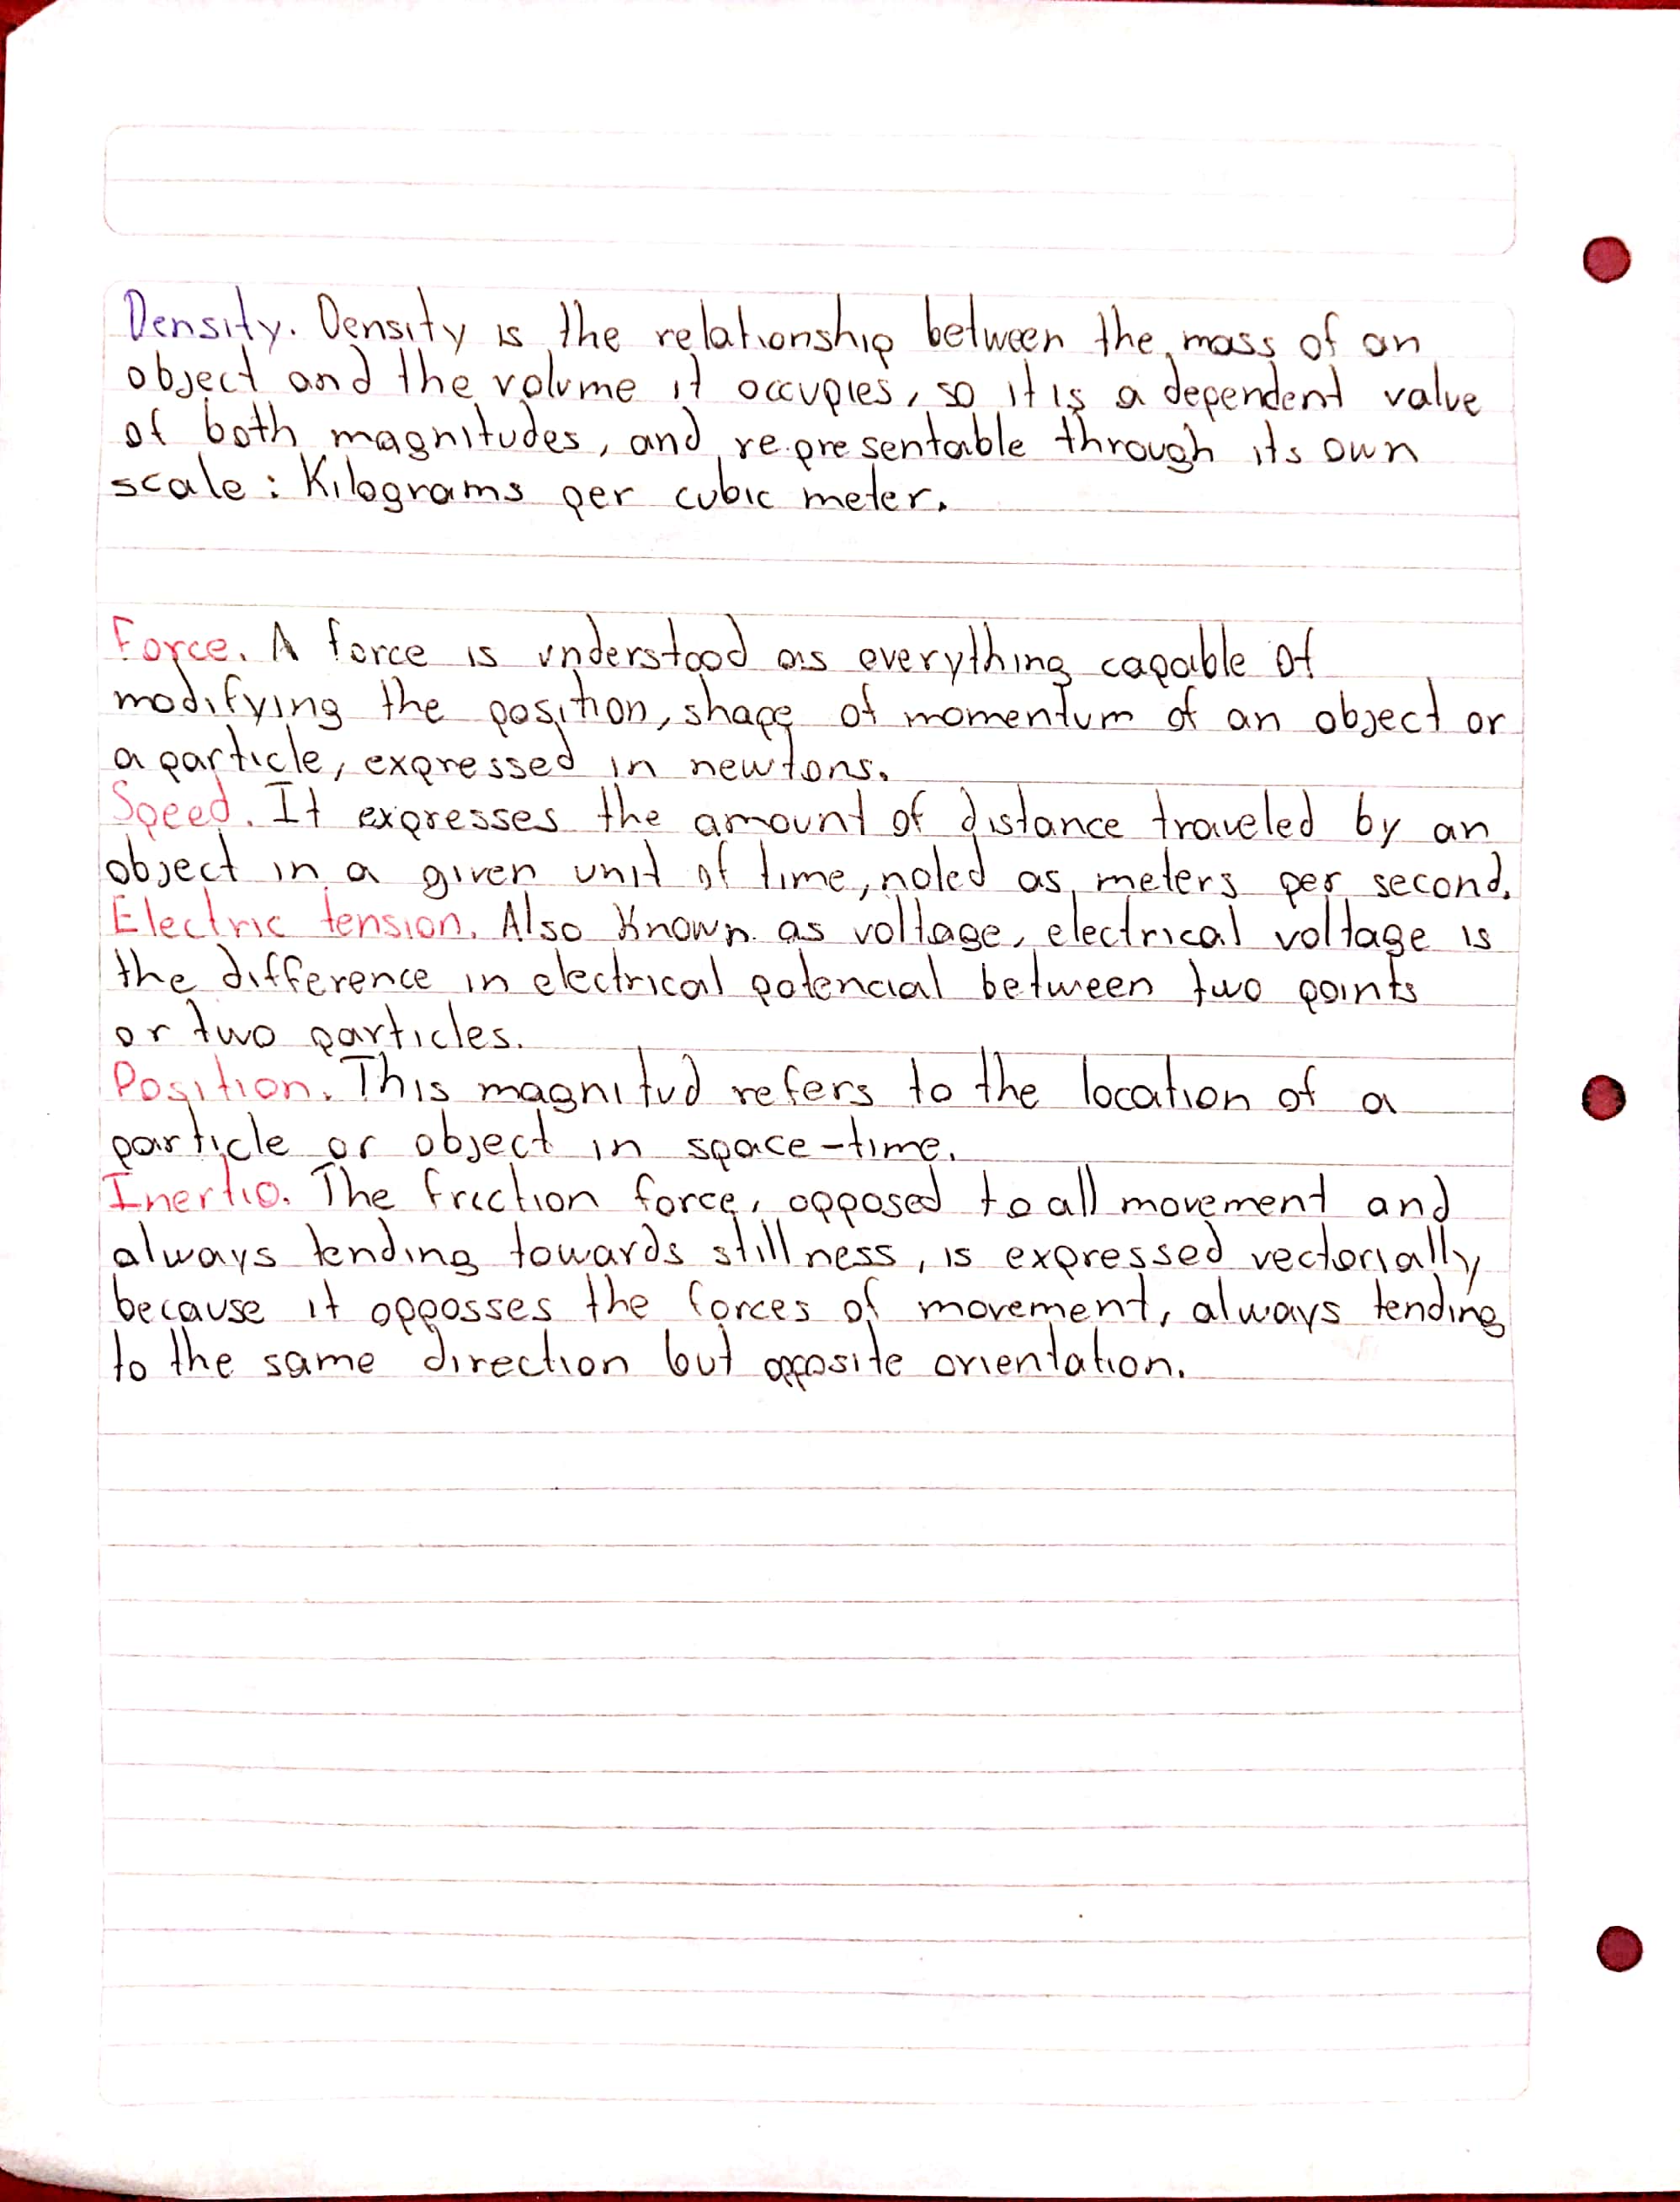 Density. Density is the relationship between the mass of an
object and the volume it occupies, so it is a dependent value
of both magnitudes, and representable through its own
scale: Kilograms per cubic meter.
Force. A force is understood as everything capable of
modifying the position, shape of momentum of an object or
a particle, expressed in newtons.
Speed. It expresses the amount of distance traveled by an
object in a given unit of time, noted as meters per second.
Electric tension. Also Known as voltage, electrical voltage is
the difference in electrical potencial between two points
or two particles.
Position. This magnitud refers to the location of a
particle or object in space-time.
Inertia. The friction force, opposed to all movement and
always tending towards stillness, is expressed vectorially
because it opposses the forces of movement, always tending
to the same direction but opposite orientation.